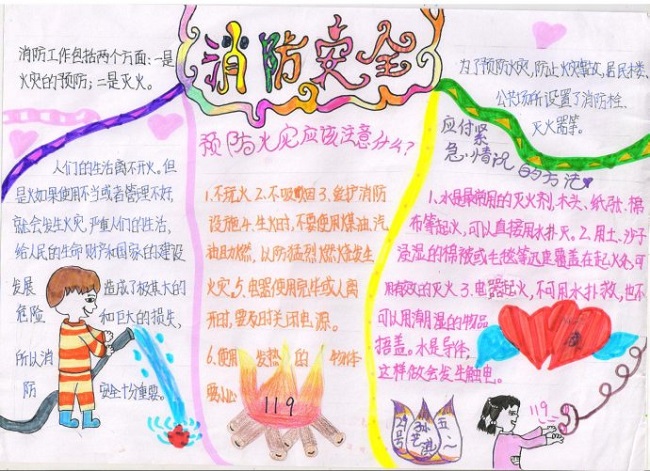 消防安全
消防工作包括两个方面：一是
火灾的预防；二是灭火。
人们的生活离不开火。但
是火如果使用不当或者管理不好，
就会发生火灾，严重人们的生活，
给人民的生命财产和国家的建设
发展造成了极其大的
危险和巨大的损失，
所以消
防安全十分重要。
预防火灾应该注意什么？
1.不玩火2.不吸烟3.爱护消防
设施4.生火时，不要使用煤油、汽
油助燃，以防猛烈燃烧发生
火灾5、电器使用完毕或人离
开时，要及时关闭电源。
6、使用发热的物体
要小心
119
为了预防火灾，防止火灾，居民楼、
公共场所设置了消防栓、
灭火器等。
应付紧
急情况的方法
1.水是最常用的灭火剂，木头、纸张、棉
布等起火，可以直接用水扑灭。2.用土、沙子
浸湿的棉被或毛毯等迅速覆盖在起火处，可
用有效的灭火3.电器起火，不可用水扑救，也不
可以用潮湿的物品
捂盖。水是导体，
这样做会发生触电。
29号
五一
119